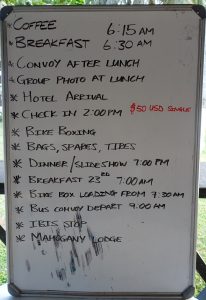 * COFFEE 6:15 AM
* BREAKFAST 6:30 AM
* CONVOY AFTER LUNCH
* GROUP PHOTO AT LUNCH
* HOTEL ARRIVAL
* CHECK IN 2:00PM $50 USD SINGLE
* BIKE BOXING
* BAGS, SPARES, TIRES
* DINNER/SLIDESHOW 7:00 PM
* BREAKFAST 23RD 7:00AM
* BIKE BOX LOADING FROM 7:30AM
* BUS CONVOY DEPART 9:00AM
* IBIS STOP
* MAHOGANY LODGE